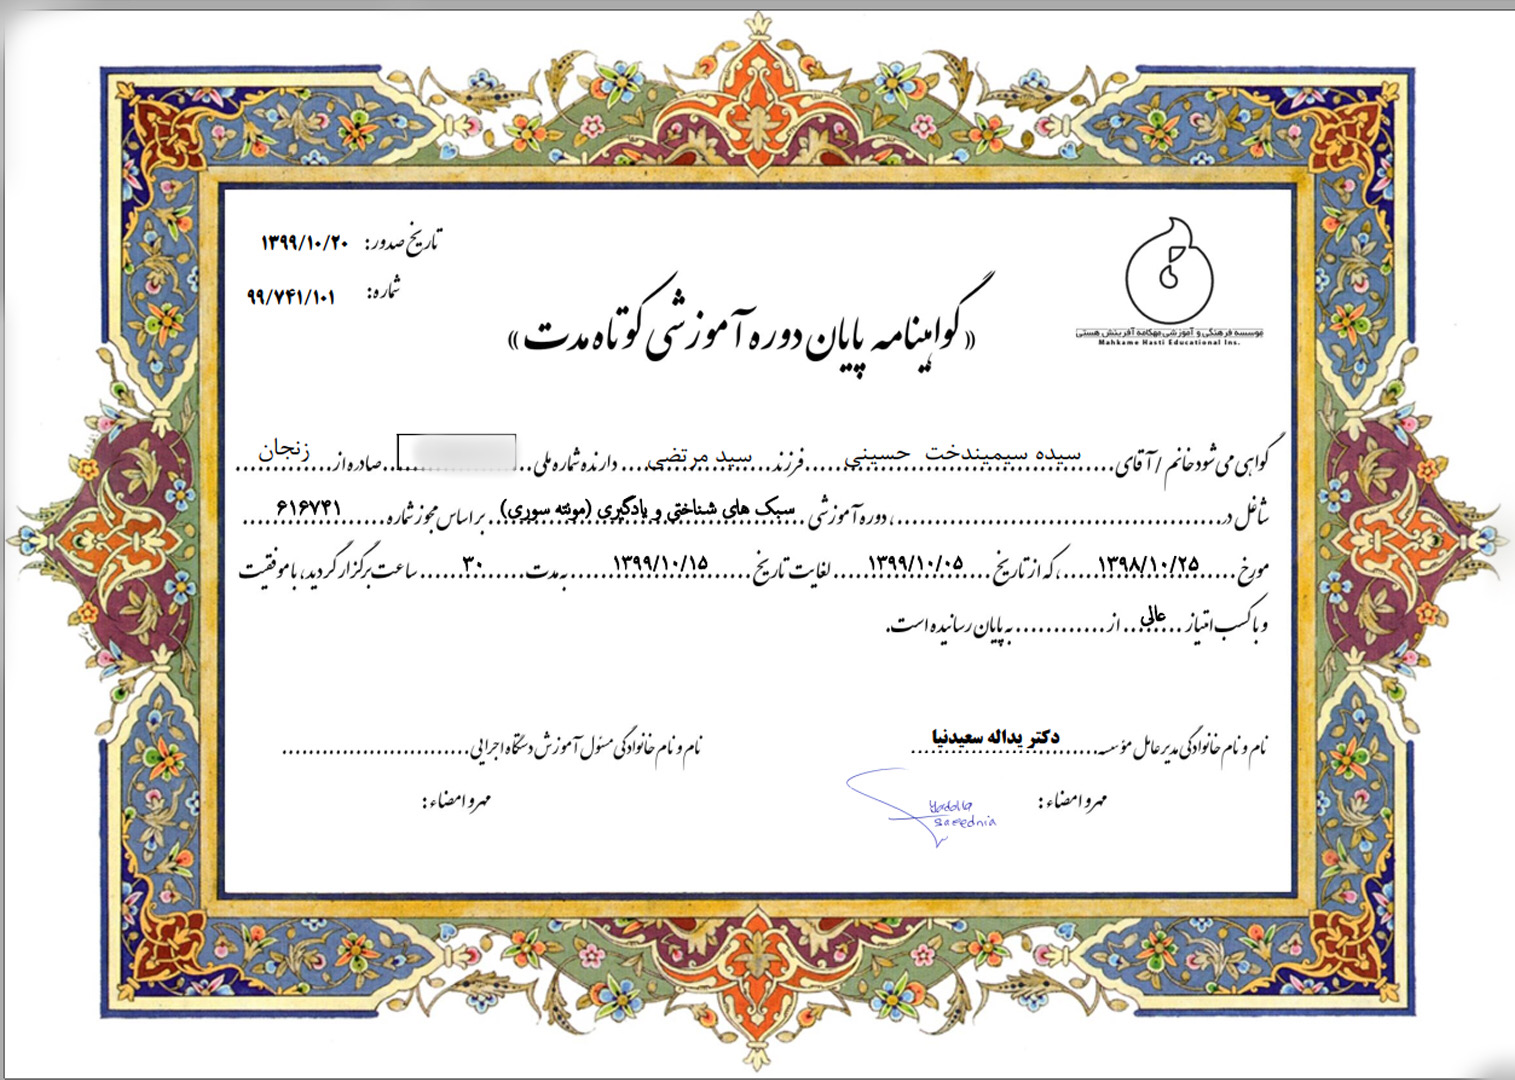 تاریخ صدور: ۱۳۹۹/۱۰/۲۰
شماره: ۹۹/۷۴۱/۱۰۱
موسسه فرهنگی و آموزشی مهکامه آفرینش هستی
Mahkame Hasti Educational Ins.
«گواهینامه پایان دوره آموزشی کوتاه مدت»
گواهی می شود خانم / آقای سیده سیمیندخت حسینی فرزند سید مرتضی دارنده شماره ملی صادره از زنجان
شاغل در ، دوره آموزشی سبک های شناختی و یادگیری (مونته سوری) بر اساس مجوز شماره ۶۱۶۷۴۱
مورخ ۱۳۹۸/۱۰/۲۵ ، که از تاریخ ۱۳۹۹/۱۰/۰۵ لغایت تاریخ ۱۳۹۹/۱۰/۱۵ به مدت ۳۰ ساعت برگزار گردید، با موفقیت
و با کسب امتیاز عالی از به پایان رسانیده است.
نام و نام خانوادگی مدیر عامل مؤسسه دکتر یداله سعیدنیا
نام و نام خانوادگی مسئول آموزش دستگاه اجرایی
مهر و امضاء :
Yadolla
Saeednia
مهر و امضاء :